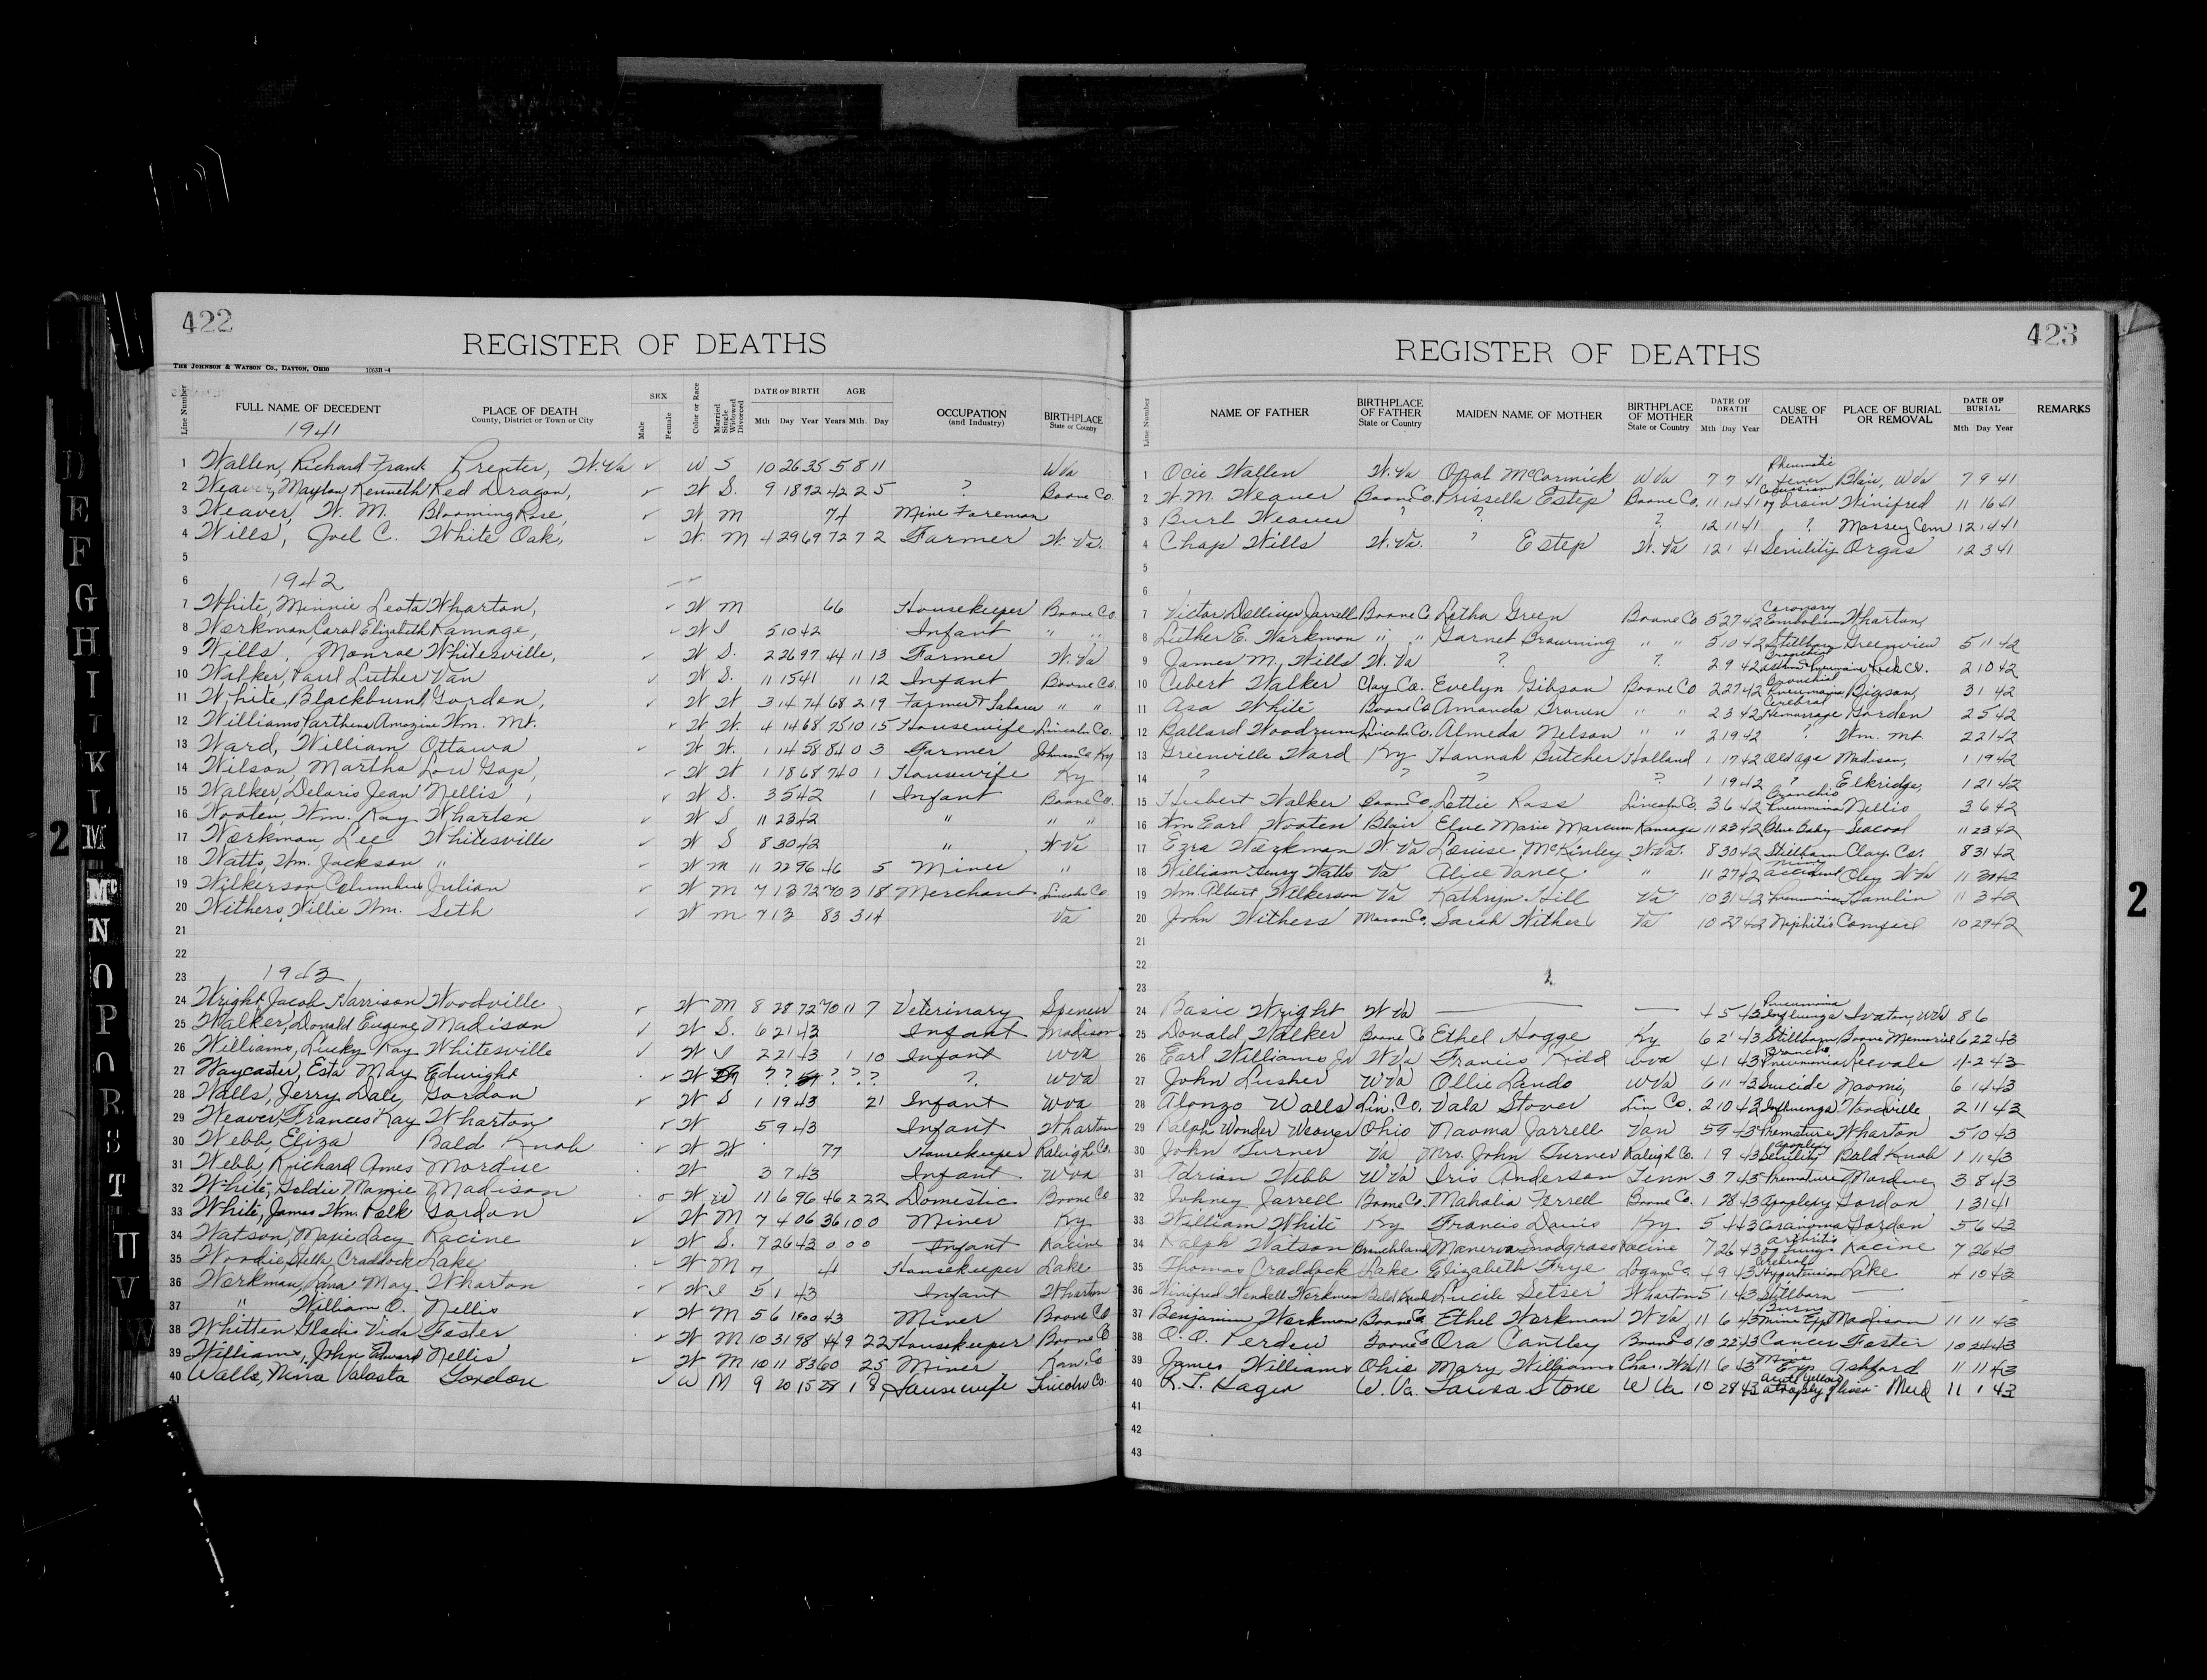 422
REGISTER OF DEATHS
THE JOHNSON & WATSON CO., DAYTON, OHIO 1063B-4
Line Number FULL NAME OF DECEDENT PLACE OF DEATH County, District or Town or City SEX Male Female Color or Race Married Single Widowed Divorced DATE OF BIRTH Mth Day Year AGE Years Mth. Day OCCUPATION (and Industry) BIRTHPLACE State or Country
1941
1 Wallen, Richard Frank Prenter, W.Va ✓ W S 10 26 35 5 8 11 WVa
2 Weaver, Maylon Kenneth Red Dragon, ✓ W S. 9 18 92 42 2 5 ? Boone Co.
3 Weaver, W. M. Blooming Rose, ✓ W M 74 Mine Foreman
4 Wills, Joel C. White Oak, ✓ W. M 4 29 69 72 7 2 Farmer W. Va.
5
6 1942
7 White, Minnie Leota Wharton, ✓ W M 66 Housekeeper Boone Co.
8 Workman, Carol Elizabeth Ramage, ✓ W S 5 10 42 Infant " "
9 Wills, Monroe Whitesville, ✓ W S. 2 26 97 44 11 13 Farmer W. Va
10 Walker, Paul Luther Van ✓ W S. 11 15 41 11 12 Infant Boone Co.
11 White, Blackburn Gordon, ✓ W W 3 14 74 68 2 19 Farmer & Laborer " "
12 Williams Parthena Amazine Wm. Mt. ✓ W W. 4 14 68 75 10 15 Housewife Lincoln Co.
13 Ward, William Ottawa ✓ W W. 1 14 58 84 0 3 Farmer Johnson Co Ky
14 Wilson, Martha Low Gap, ✓ W W 1 18 68 74 0 1 Housewife Ky
15 Walker, Deloris Jean Nellis, ✓ W S. 3 5 42 1 Infant Boone Co.
16 Wooten, Wm. Ray Wharton ✓ W S 11 23 42 " " "
17 Workman, Lee Whitesville ✓ W S 8 30 42 " W Va
18 Watts, Wm. Jackson " ✓ W M 11 22 96 46 5 Miner "
19 Wilkerson Columbus Julian ✓ W M 7 13 72 70 3 18 Merchant Lincoln Co
20 Withers, Willie Wm. Seth ✓ W M 7 13 83 3 14 Va
21
22
23 1943
24 Wright, Jacob Harrison Woodville ✓ W M 8 28 72 70 11 7 Veterinary Spencer
25 Walker, Donald Eugene, Madison ✓ W S. 6 21 43 Infant Madison
26 Williams, Lucky Ray Whitesville ✓ W S 2 21 43 1 10 Infant WVa
27 Waycaster, Esta May Edwight ✓ W ? ? ? ? ? ? WVa
28 Walls, Jerry Dale, Gordon ✓ W S 1 19 43 21 Infant WVa
29 Weaver, Frances Kay Wharton ✓ W 5 9 43 Infant Wharton
30 Webb, Eliza Bald Knob ✓ W W 77 Housekeeper Raleigh Co.
31 Webb, Richard Ames Mordue W 3 7 43 Infant WVa
32 White, Goldie Mamie Madison W W 11 6 96 46 2 22 Domestic Boone Co
33 White, James Wm. Polk Gordon ✓ W M 7 4 06 36 10 0 Miner Ky
34 Watson, Marie Lacy Racine ✓ W S. 7 26 43 0 0 0 Infant Racine
35 Woodie, Stella Craddock Lake ✓ W M 7 41 Housekeeper Lake
36 Workman, Lana May Wharton ✓ W S 5 1 43 Infant Wharton
37 " William O. Nellis ✓ W M 5 6 1900 43 Miner Boone Co
38 Whitten Gladis Vida Foster ✓ W M 10 31 98 44 9 22 Housekeeper Boone Co
39 Williams, John Edward Nellis ✓ W M 10 11 83 60 25 Miner Kan. Co
40 Walls, Nina Valasta Gordon ✓ W M 9 20 15 28 1 8 Housewife Lincoln Co.
41
423
REGISTER OF DEATHS
Line Number NAME OF FATHER BIRTHPLACE OF FATHER State or Country MAIDEN NAME OF MOTHER BIRTHPLACE OF MOTHER State or Country DATE OF DEATH Mth Day Year CAUSE OF DEATH PLACE OF BURIAL OR REMOVAL DATE OF BURIAL Mth Day Year REMARKS
1 Ocie Wallen W. Va Opal McCormick W Va 7 7 41 Rheumatic fever Blair, WVa 7 9 41
2 W. M. Weaver Boone Co. Prissella Estep Boone Co. 11 14 41 Concussion of brain Winifred 11 16 41
3 Burl Weaver ? ? ? 12 11 41 ? Massey Cem 12 14 41
4 Chap Wills W. Va. ? Estep W. Va 12 1 41 Senility Orgas 12 3 41
5
6
7 Victor Dellinger Jarrell Boone C Letha Green Boone Co 5 27 42 Coronary Embolism Wharton,
8 Luther E. Workman " " Garnet Browning " " 5 10 42 Stillborn Greenview 5 11 42
9 James M. Wills W. Va ? ? 2 9 42 Rock Ck. 2 10 42
10 Cebert Walker Clay Co. Evelyn Gibson Boone Co 2 27 42 Bronchial Pneumonia Bigson, 3 1 42
11 Asa White Boone Co Amanda Brown " " 2 3 42 Cerebral Hemorrage Gordon 2 5 42
12 Ballard Woodrum Lincoln Co. Almeda Nelson " " 2 19 42 ? Wm. Mt 2 21 42
13 Greenville Ward Ky Hannah Butcher Holland 1 17 42 Old age Madison, 1 19 42
14 ? ? ? ? 1 19 42 ? Elkridge, 1 21 42
15 Hubert Walker Boone Co. Lettie Ross Lincoln Co. 3 6 42 Broncho Pneumonia Nellis 3 6 42
16 Wm Earl Wooten Blair Elve Marie Marcum Ramage 11 23 42 Blue Baby Seacool 11 23 42
17 Ezra Workman W. Va Louise McKinley W.Va. 8 30 42 Stillborn Clay. Co. 8 31 42
18 William Henry Watts Va Alice Vance " 11 27 42 Mine accident Oley W-Va 11 30 42
19 Wm. Albert Wilkerson Va Kathryn Hill Va 10 31 42 Pneumonia Hamlin 11 3 42
20 John Withers Mason Co. Sarah Wither Va 10 27 42 Nephitis Comfort 10 29 42
21
22
23
24 Basic Wright W Va — — 4 5 43 Pneumonia Influenza Ivaton, WVa 8 6
25 Donald Walker Boone C Ethel Hogge Ky 6 21 43 Stillborn Boone Memorial 6 22 43
26 Earl Williams Jr W Va Francis Kidd WVa 4 1 43 Broncho Pneumonia Keevale 4-2 43
27 John Lusher WVa Ollie Lando WVa 6 11 43 Suicide Naomi, 6 14 43
28 Alonzo Walls Lin. Co. Vala Stover Lin Co. 2 10 43 Influenza Woodville 2 11 43
29 Ralph Wonder Weaver Ohio Naoma Jarrell Van 5 9 43 Premature Wharton 5 10 43
30 John Turner Va Mrs. John Turner Raleigh Co. 1 9 43 apoplexy Senility Bald Knob 1 11 43
31 Adrian Webb W Va Iris Anderson Tenn 3 7 45 Premature Mordue, 3 8 43
32 Johney Jarrell Boone Co. Mahalia Ferrell Boone Co. 1 28 43 Apoplexy Gordon 1 31 41
33 William White Ky Francis Davis Ky. 5 4 43 Carcinoma Gordon 5 6 43
34 Ralph Watson Branchland Manerva Snodgrass Racine 7 26 43 of Lungs Racine 7 26 43
35 Thomas Craddock Lake Elizabeth Frye Logan Co. 4 9 43 Cerebral Hypertension Lake 4 10 43
36 Winifred Wendell Workman Bald Knob Lucile Setser Wharton 5 1 43 Stillborn —
37 Benjamin Workman Boone Co Ethel Workman W Va 11 6 43 Burns Mine Exp Madison 11 11 43
38 O. O. Perdew Boone Co Ora Cantley Boone Co 10 22 43 Cancer Foster 10 24 43
39 James Williams Ohio Mary Williams Chas. WVa 11 6 43 Mine Exp. Ashford 11 11 43
40 R. T. Hager W. Va. Laura Stone W Va 10 28 43 acute yellow atrophy of liver Mud 11 1 43
41
42
43
2
2
D
E
F
G
H
I
K
L
M
Mc
N
O
P
R
S
T
U
V
W